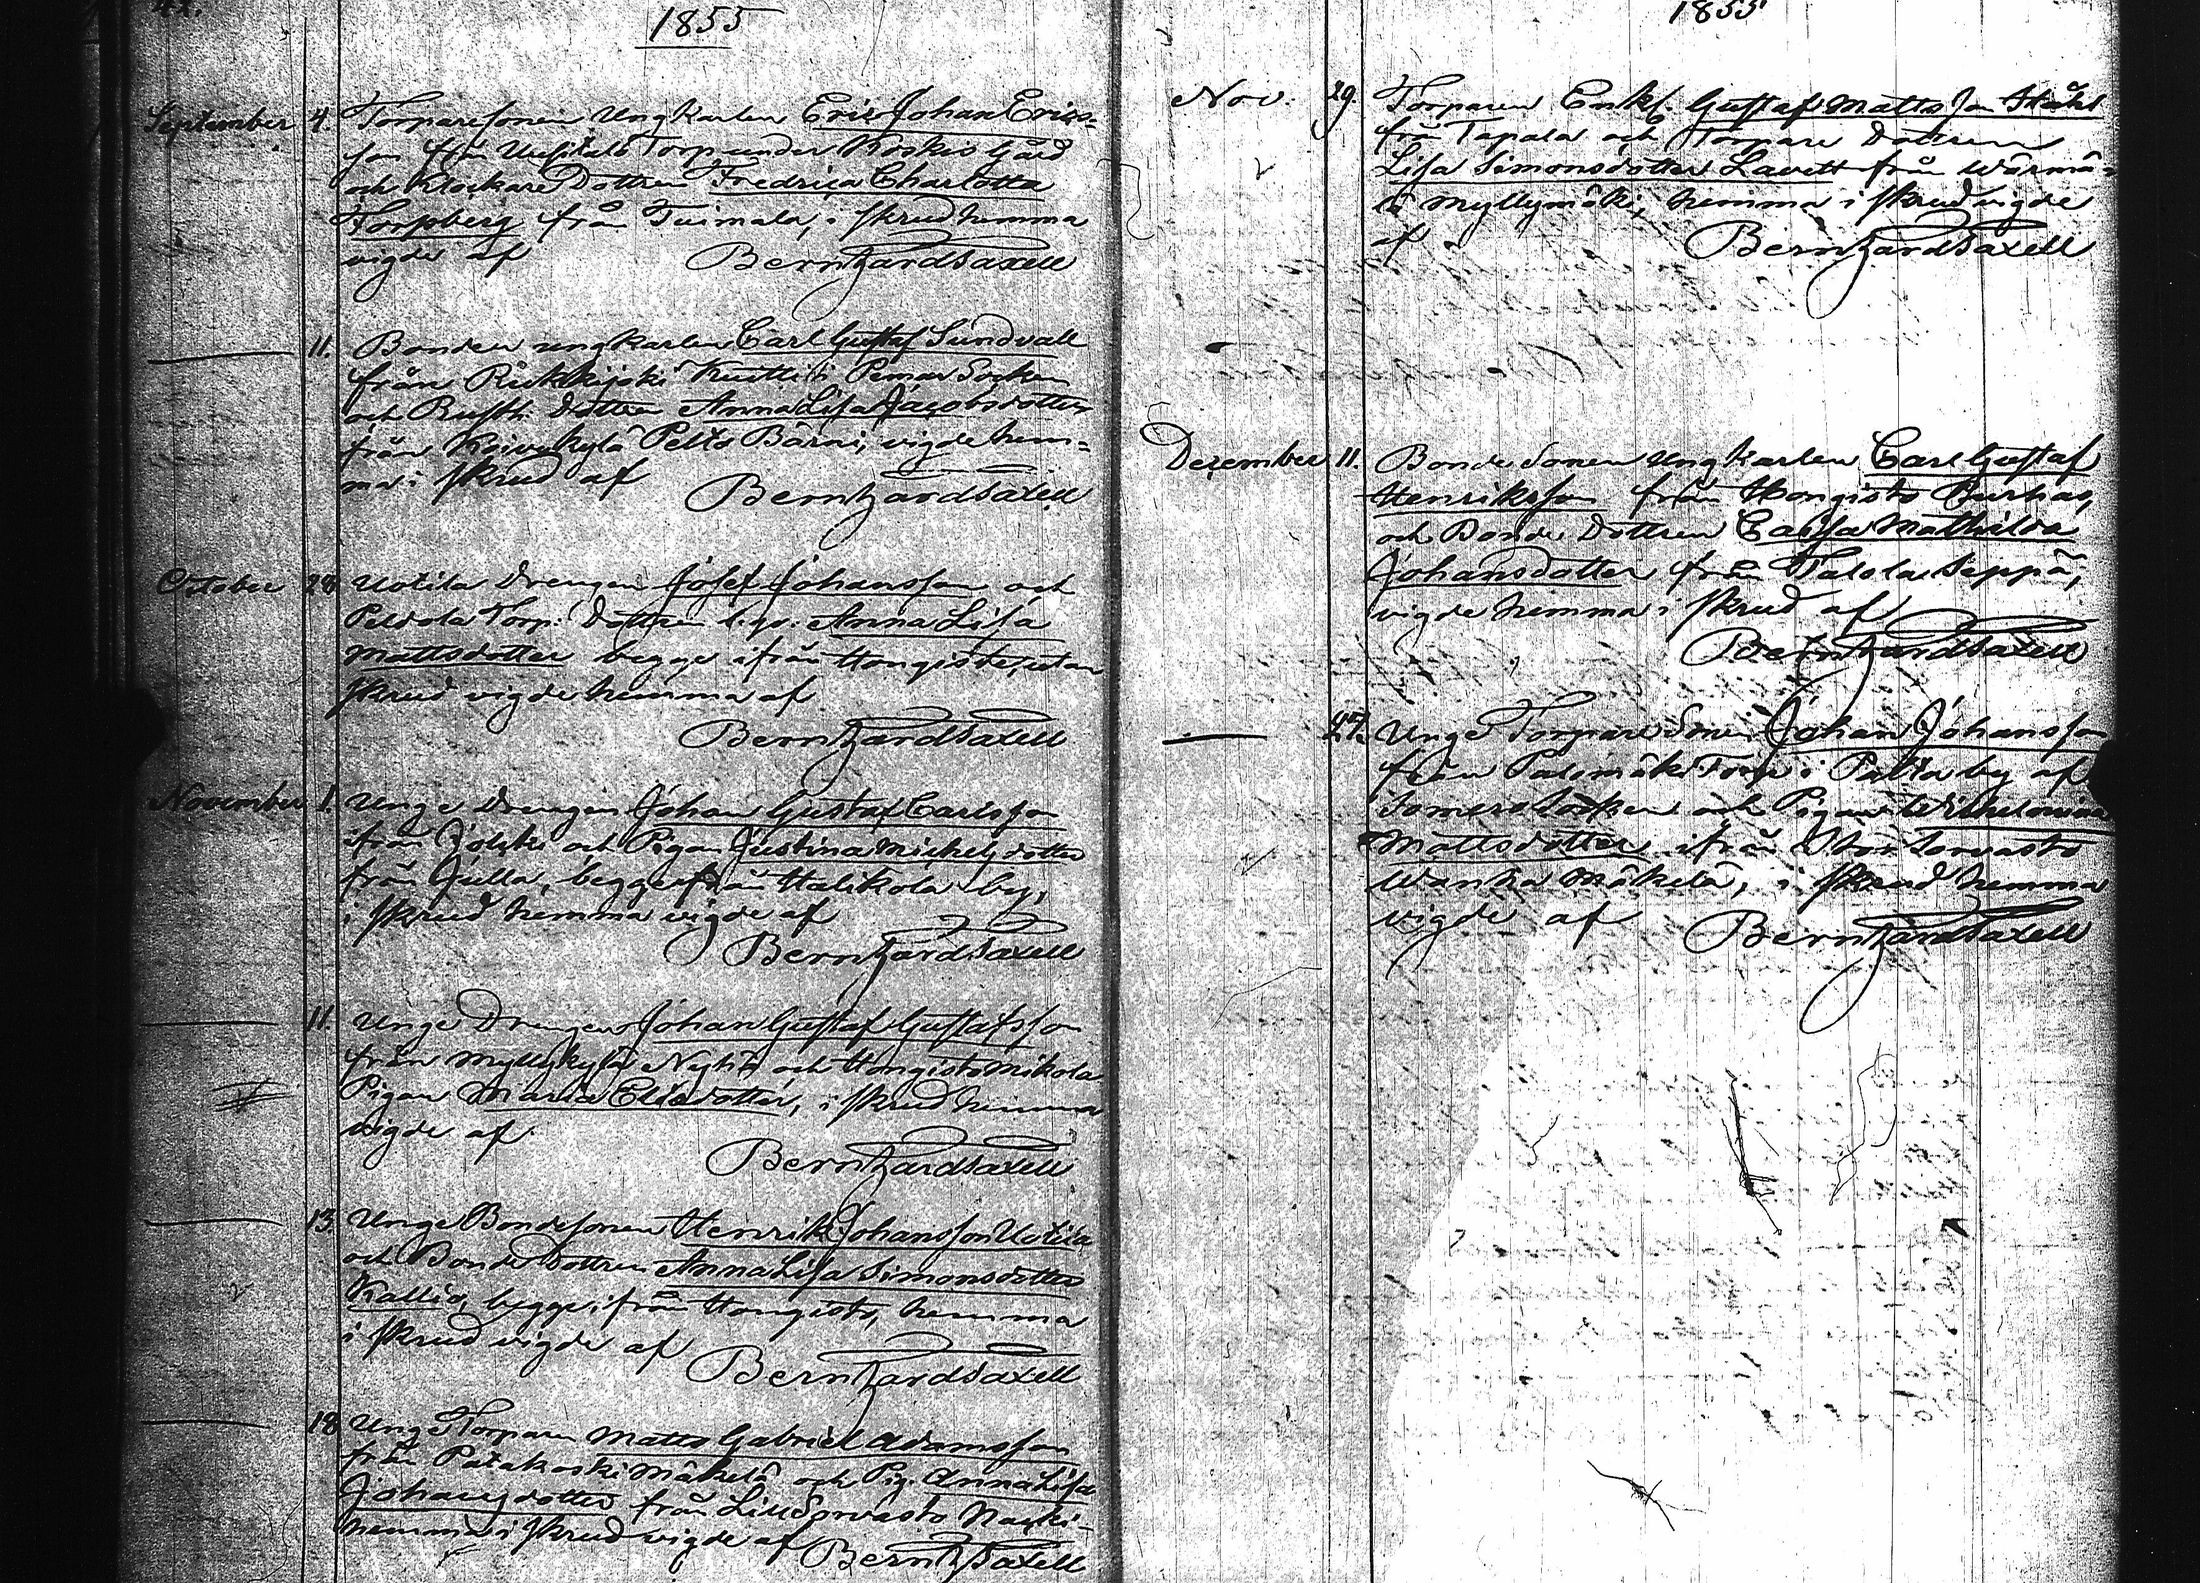 42.
1855
September 4. Torparesonen Ungkarlen Eric Johan Erics-
son från Torp under Koskis Gård
och Klockare Dottren Fredrica Charlotta
Forsberg från Tuimala, i skrud hemma
vigde af Berntzard Saxell
11. Bonden ungkarlen Carl Gustaf Sundvall
från Kuttis i Pemar Socken
och Rusth. Dottren Anna Lisa Jacobsdotter
från Koivukylä Pelto Bärni, vigde hem-
ma i skrud af Berntzard Saxell
October 28 Uotila Drengen Josef Johansson och
Peldola Torp. Dottren Anna Lisa
Mattsdotter begge ifrån Hongisto, utan
skrud vigde hemma af
Berntzard Saxell
November 1. Unge Drengen Johan Gustaf Carlsson
ifrån och Pigan Justina Michelsdotter
från Julla, begge från Halikola by,
i skrud hemma vigde af
Berntzard Saxell
11. Unge Drengen Johan Gustaf Gustafsson
från Myllykylä och Hongisto Mikola
Pigan Maria Eliedotter, i skrud hemma
vigde af
Berntzard Saxell
13. Unge Bondesonen Henrik Johansson Uotila
och Bonde Dottren Anna Lisa Simonsdotter
Kallio, begge ifrån Hongisto, hemma
i skrud vigde af
Berntzard Saxell
18 Unge Torparen Matts Gabriel Adamsson
från Patakoski Mäkelä och Pig. Anna Lisa
Johansdotter från Liedsorvasto
hemma i skrud vigde af Berntz Saxell
1855
Nov. 29. Torparen Enkl. Gustaf Mattsson Ståhl
från Tapala och Torpare Dottren
Lisa Simonsdotter Lavett från Wärmä-
lä Myllymäki, hemma i skrud vigde
af Berntzard Saxell
Dezember 11. Bonde Sonen Ungkarlen Carl Gustaf
Henriksson från Hongisto
och Bonde Dottren Caisa Mathilda
Johansdotter från Talola Seppä,
vigde hemma i skrud af
Berntzard Saxell
27. Unge Torpare Sonen Johan Johansson
från Palomäki Torp i Palta by af
Somero Socken och Pigan Wilhelmina
Mattsdotter ifrån
Wanha Mäkelä, i skrud hemma
vigde af Berntzard Saxell